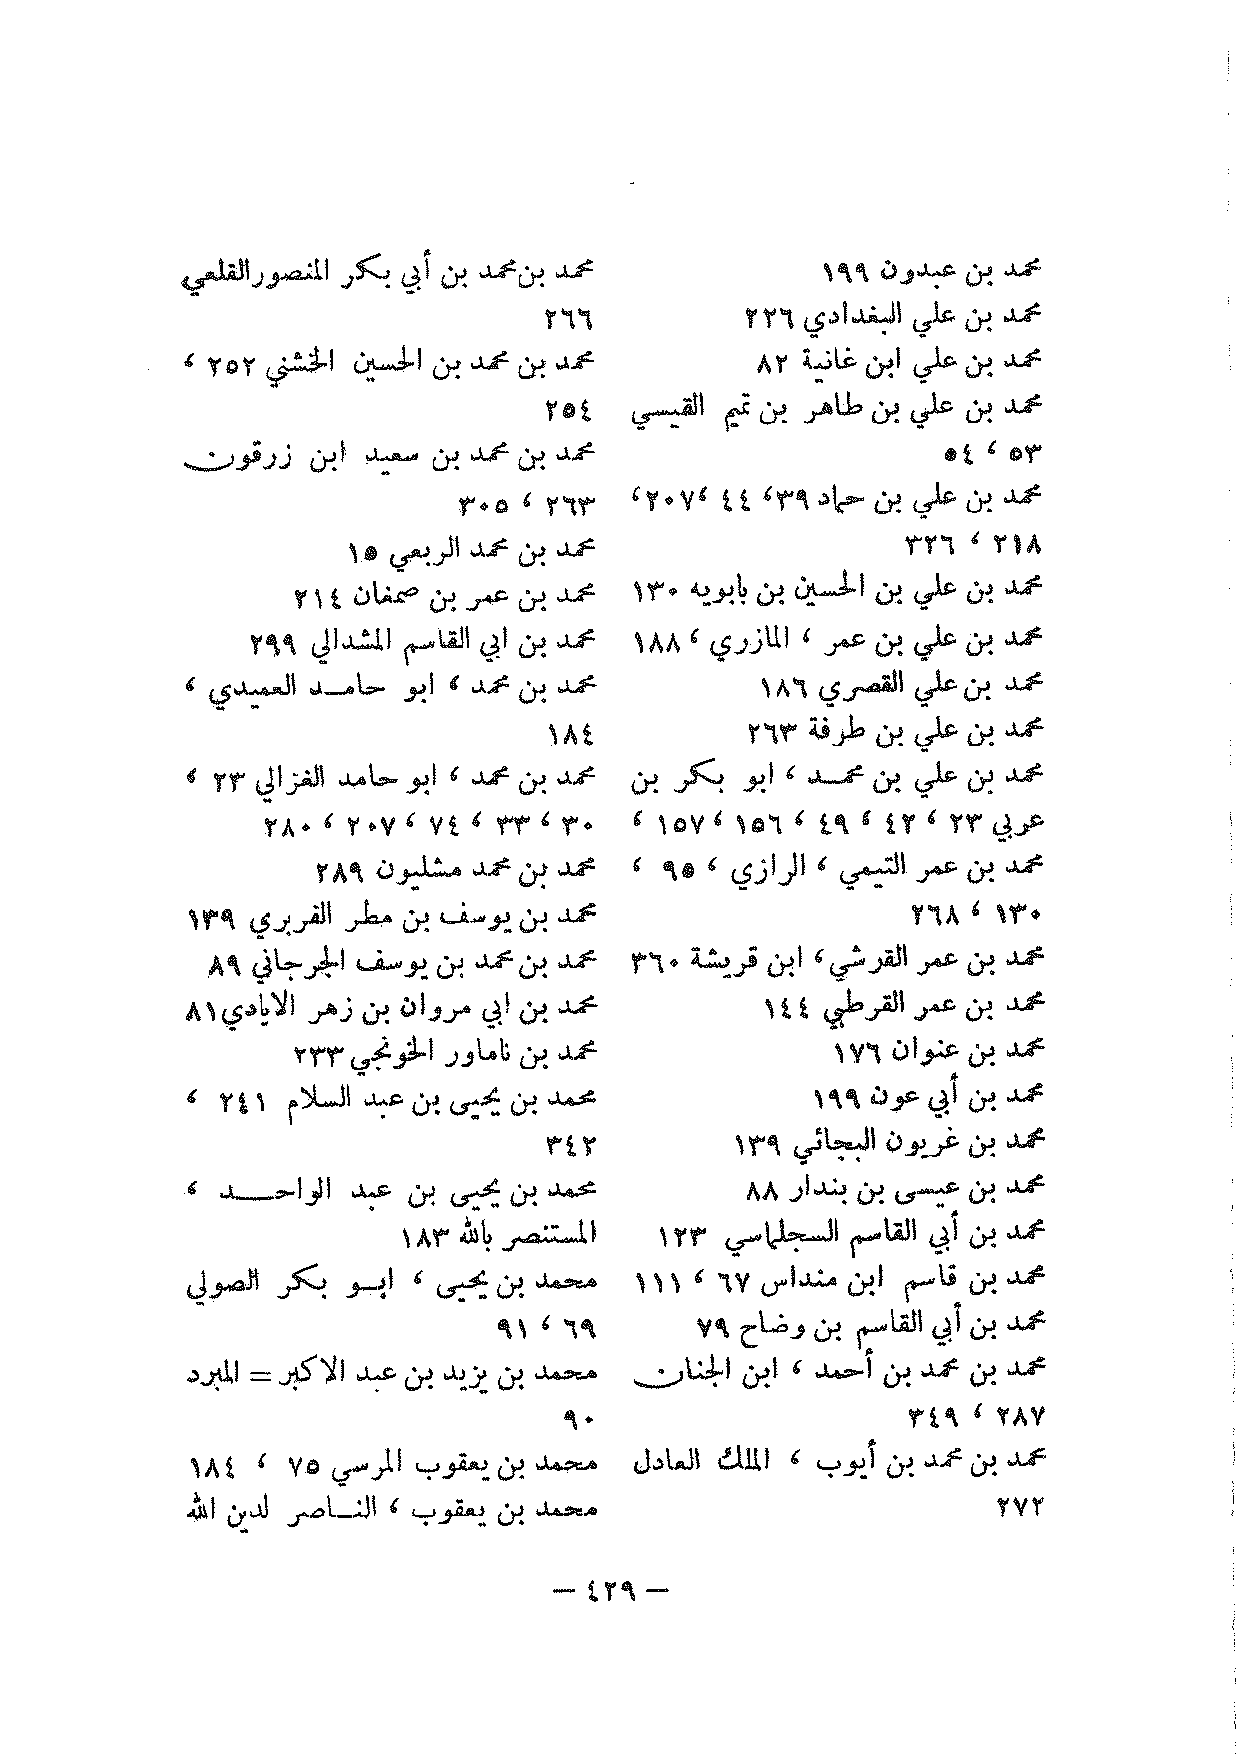 محمد بن عبدون ١٩٩
محمد بن علي البغدادي ٢٢٦
محمد بن علي ابن غانية ٨٢
محمد بن علي بن طاهر بن تميم القيسي
٥٣ ، ٥٤
محمد بن علي بن حماد ٣٩، ٤٤ ،٢٠٧،
٢١٨ ، ٣٢٦
محمد بن علي بن الحسين بن بابويه ١٣٠
محمد بن علي بن عمر ، المازري ، ١٨٨
محمد بن علي القصري ١٨٦
محمد بن علي بن طرفة ٢٦٣
محمد بن علي بن محمد ، ابو بكر بن
عربي ٢٣ ، ٤٢ ، ٤٩ ، ١٥٦ ، ١٥٧ ،
محمد بن عمر التيمي ، الرازي ، ٩٥ ،
١٣٠ ، ٢٦٨
محمد بن عمر القرشي، ابن قريشة ٣٦٠
محمد بن عمر القرطبي ١٤٤
محمد بن عنوان ١٧٦
محمد بن أبي عون ١٩٩
محمد بن غريون البجائي ١٣٩
محمد بن عيسى بن بندار ٨٨
محمد بن أبي القاسم السجلماسي ١٢٣
محمد بن قاسم ابن منداس ٦٧ ، ١١١
محمد بن أبي القاسم بن وضاح ٧٩
محمد بن محمد بن أحمد ، ابن الجنان
٢٨٧ ، ٣٤٩
محمد بن محمد بن أيوب ، الملك العادل
٢٧٢
محمد بن محمد بن أبي بكر المنصور القلعي
٢٦٦
محمد بن محمد بن الحسين الخشني ٢٥٢ ،
٢٥٤
محمد بن محمد بن سعيد ابن زرقون
٢٦٣ ، ٣٠٥
محمد بن محمد الربعي ١٥
محمد بن عمر بن صمفان ٢١٤
محمد بن ابي القاسم المشدالي ٢٩٩
محمد بن محمد ، ابو حامد العميدي ،
١٨٤
محمد بن محمد ، ابو حامد الغزالي ٢٣ ،
٣٠ ، ٣٣ ، ٧٤ ، ٢٠٧ ، ٢٨٠
محمد بن محمد مشليون ٢٨٩
محمد بن يوسف بن مطر الفربري ١٣٩
محمد بن محمد بن يوسف الجرجاني ٨٩
محمد بن ابي مروان بن زهر الايادي ٨١
محمد بن ناماور الخونجي ٢٣٣
محمد بن يحيى بن عبد السلام ٢٤١ ،
٣٤٢
محمد بن يحيى بن عبد الواحد ،
المستنصر بالله ١٨٣
محمد بن يحيى ، ابو بكر الصولي
٦٩ ، ٩١
محمد بن يزيد بن عبد الاكبر = المبرد
٩٠
محمد بن يعقوب المرسي ٧٥ ، ١٨٤
محمد بن يعقوب ، الناصر لدين الله
— ٤٢٩ —